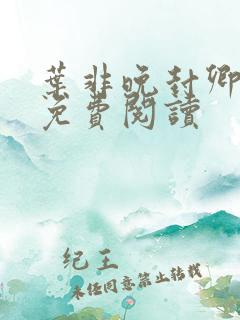 葉非晚封卿
免費閱讀
纪王
未经同意禁止转载